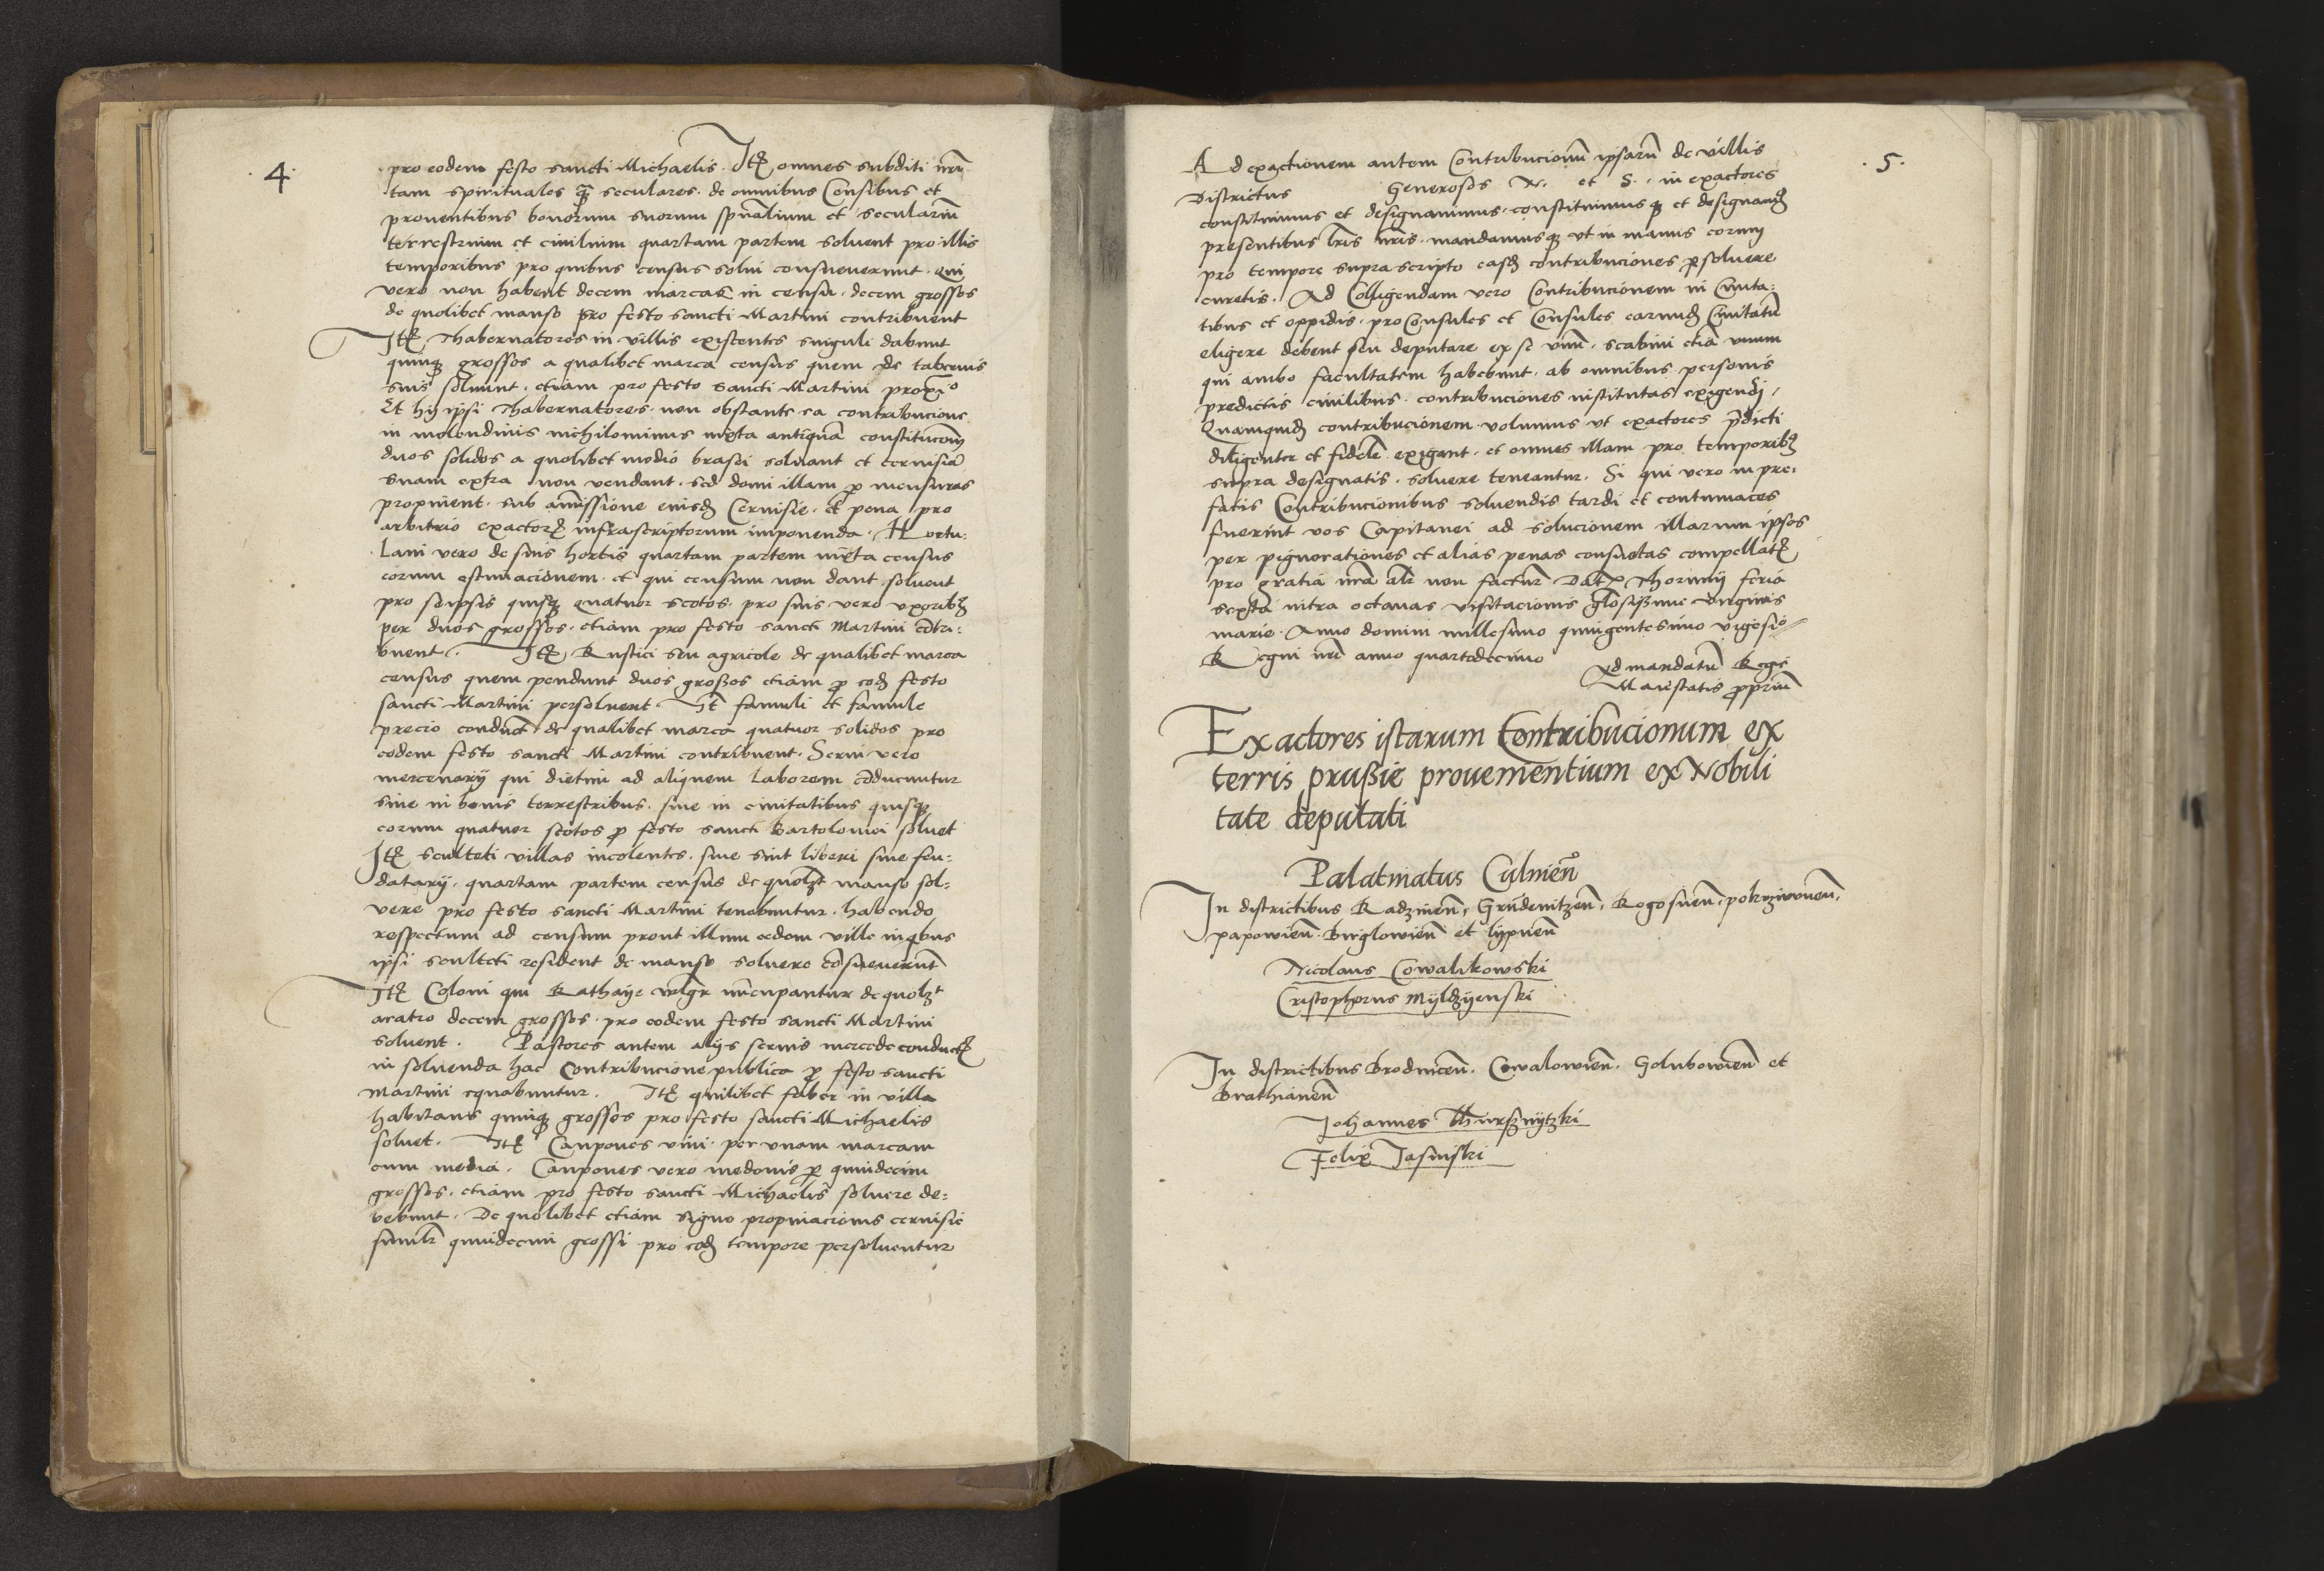 4.
pro eodem festo sancti Michaelis. Itꝫ omnes subditi nr̄i
tam spirituales q̄ꝫ seculares. de omnibus Censibus et
prouentibus bonorum suorum spūalium et seculariū
terrestrium et ciuilium quartam partem soluent pro illis
temporibus pro quibus census solui consueuerunt. qui
vero non habent decem marcas in censu. decem grossos
de quolibet manso pro festo sancti Martini contribuent
Itꝫ Thabernatores in villis existentes singuli dabunt
quinqꝫ grossos a qualibet marca census quem de tabernis
suis soluunt. etiam pro festo sancti Martini proxi͞o
Et hij ipsi Thabernatores. non obstante ea contribucione
in molendinis nichilominus iuxta antiquā constitucōm
duos solidos a quolibet modio brasei soluant et ceruisiā
suam extra non vendant. sed domi illam ꝑ mensuras
propinent. sub amissione eiusdꝫ Ceruisie. et pena pro
arbitrio exactorꝫ infrascriptorum imponenda. Hortu:
Lani vero de suis hortis quartam partem iuxta census
eorum estimacionem. et qui censum non dant. soluent
pro seipsis quisqꝫ quatuor scotos. pro suis vero vxoribꝫ
per duos grossos. etiam pro festo sancti Martini cōtri:
buent. Itꝫ Rustici seu agricole de qualibet marca
census quem pendunt duos großos etiam ꝓ eodꝫ festo
sancti Martini persoluent It̄ famuli et famule
precio conduct̄ de qualibet marca quatuor solidos pro
eodem festo sancti Martini contribuent. Serui vero
mercenarij qui dietim ad aliquem Laborem cōducuntur
siue in bonis terrestribus. siue in ciuitatibus quisqꝫ
eorum quatuor scotos ꝓ festo sancti Bartolomei soluet
Itꝫ sculteti villas incolentes. siue sint liberi siue feu:
datarij. quartam partem census de quolꝫt manso sol:
vere pro festo sancti Martini tenebuntur. habendo
respectum ad censum prout illum eedem ville in qbus
ipsi sculteti resident de manso soluere cōsueuerunt
Itꝫ Coloni qui Rathaye vulgr̄ nūcupantur de quolꝫt
aratro decem grossos. pro eodem festo sancti Martini
soluent. Pastores antem alijs seruis mercede conductꝫ
in soluenda hac Contribucione publica ꝓ festo sancti
Martini equabuntur. Itꝫ quilibet faber in villa
habitans quinqꝫ grossos pro festo sancti Michaelis
soluet. Itꝫ Caupones vini. per vnam marcam
cum media. Caupones vero medonis ꝓ quindecim
grossos. etiam pro festo sancti Michaelis soluere de:
bebunt. De quolibet etiam signo propinacionis ceruisie
similr̄ quindecim grossi pro eodꝫ tempore persoluentur
.5.
Ad exactionem autem Contribucionū ipsarū de villis
Districtus Generosos N. et S. in exactores
constituimus et designauimus. constituimusqꝫ et designamꝫ
presentibus l̄ris nr̄is. mandamusqꝫ vt in manus eorum
pro tempore suprascripto easdꝫ contribuciones ꝑsoluere
curetis. Ad Colligendam vero Contribucionem in Ciuita:
tibus et oppidis. proConsules et Consules earundꝫ Ciuitatū
eligere debent seu deputare ex se vnū. scabini etiā vnum
qui ambo facultatem habebunt. ab omnibus personis
predictis ciuilibus. contribuciones institutas exigendi,
Quamquidꝫ contribucionem volumus vt exactores p̄dicti
diligenter et fidelr̄ exigant. et omnes illam pro temporibꝫ
supra designatis. soluere teneantur. Si qui vero in pre:
fatis Contribucionibus soluendis tardi et contumaces
fuerint vos Capitanei ad solucionem illarum ipsos
per pignorationes et alias penas consuetas compellatꝫ
pro gratia nr̄a alr̄ non facturꝫ Datꝫ Thorunij feria
sexta intra octauas visitacionis gl̄osißime virginis
marie. Anno domini millesimo quingentesimo vigesi͞o
Regni nr̄i anno quartodecimo
Ad mandatū Regie
Maiestatis ꝓpriū
Exactores istarum Contribucionum ex
terris prußie prouementium ex Nobili
tate deputati
Palatinatus Culmen̄
In districtibus Radzinen̄, Grudenitzen̄, Rogosnen̄, pokrziwnen̄,
papowien̄. Birglowien̄ et lypnen̄
Nicolaus Cowalikowski
Cristopherus Myldzyenski
In districtibus Brodnicen̄. Cowalowien̄. Golubowien̄ et
Brathianen̄
Johannes Wurßnytzki
Felix Jasinski